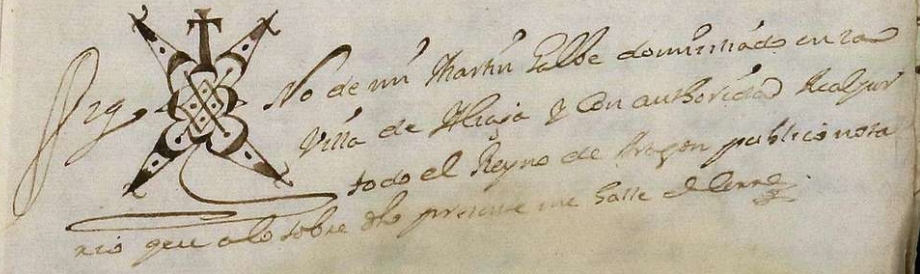 Sig No de mi Martin Galbe domiciliado en la
Villa de Aliaga y con authoridad Real por
todo el Reyno de Aragon publico nota
rio que a lo sobre dho presente me halle et cerre